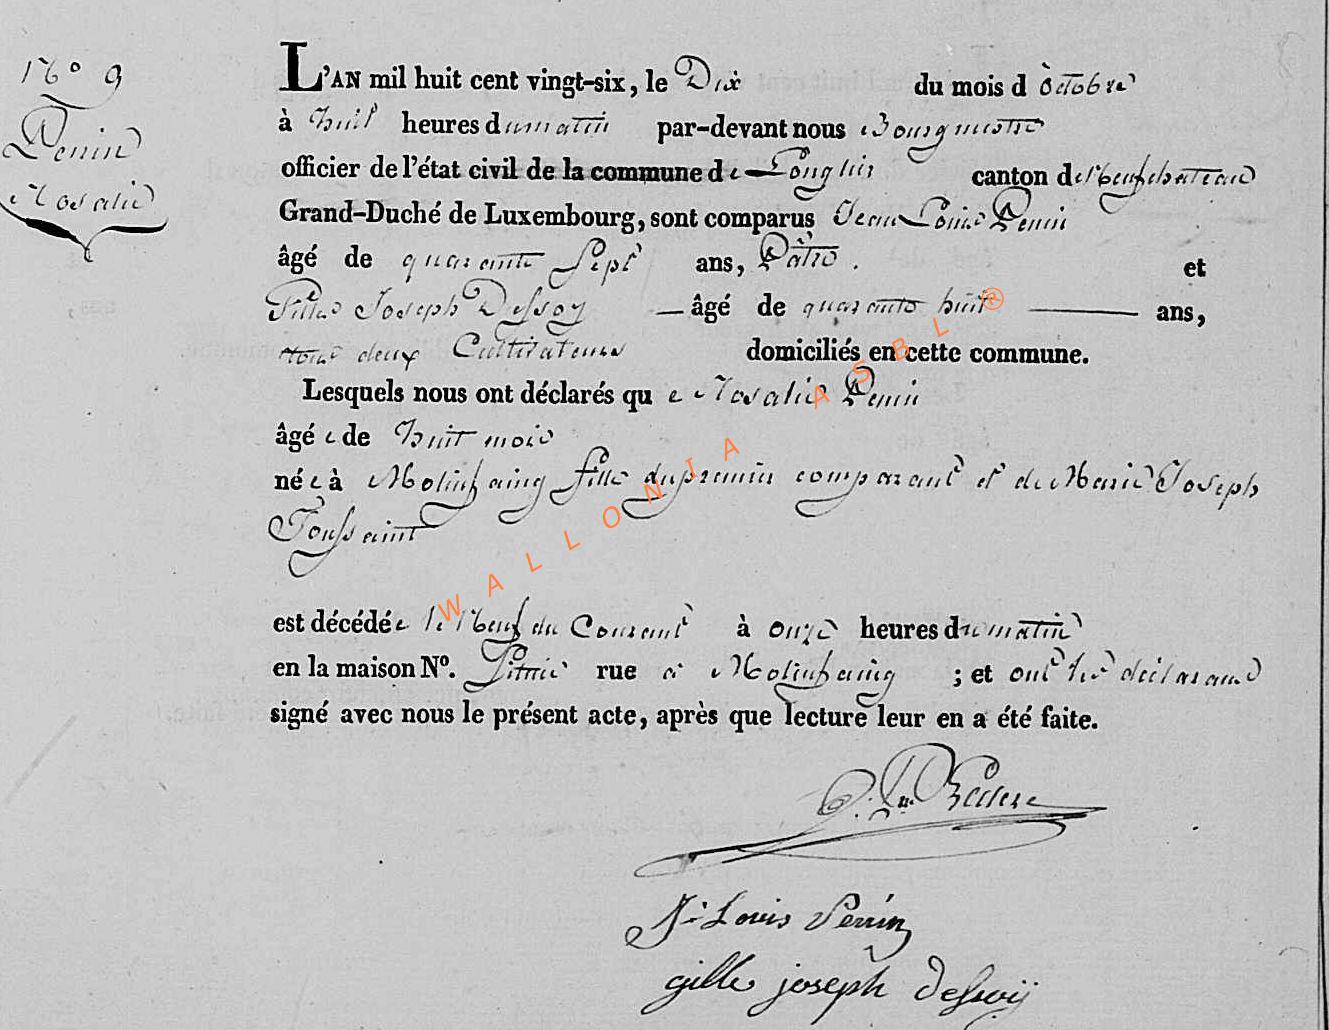 N° 9
Penin
Rosalie
L'AN mil huit cent vingt-six, le Dix du mois d'octobre
à huit heures du matin par-devant nous Bourgmestre
officier de l'état civil de la commune de Longlier canton de Neufchateau
Grand-Duché de Luxembourg, sont comparus Jean Louis Penin
âgé de quarante Sept ans, Pâtre. et
Gille Joseph Dessoy — âgé de quarante huit — ans,
tous deux Cultivateurs domiciliés en cette commune.
Lesquels nous ont déclarés que Rosalie Penin
âgée de huit mois
née à Molinfaing fille du premier comparant et de Marie Joseph
Toussaint
est décédée le Neuf du Courant à onze heures du matin
en la maison N°. Sitüée rue à Molinfaing ; et ont les déclarans
signé avec nous le présent acte, après que lecture leur en a été faite.
J. Louis Perrin
gille joseph Desswÿ
WALLONIA ASBL ®